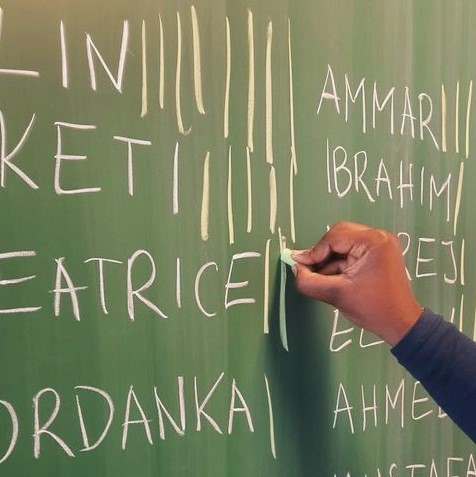 LIN
KETI
EATRICE
ORDANKA
AMMAR
IBRAHIM
AHME